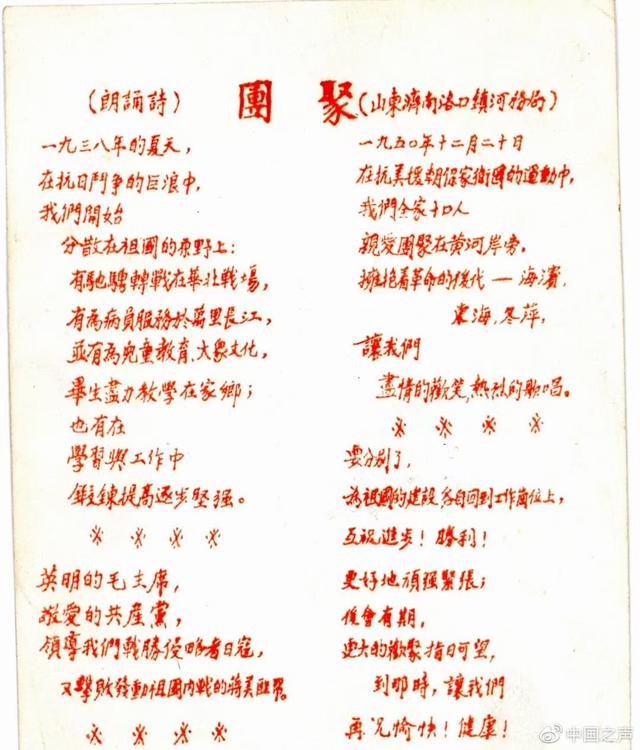 團聚
（朗誦詩）
（山東濟南洛口鎮河務局）
一九三八年的夏天，
在抗日鬥争的巨浪中，
我們開始
分散在祖國的原野上：
有馳騁轉戰在華北戰場，
有為病員服務於萬里長江，
並有為兒童教育、大衆文化，
畢生盡力教學在家鄉；
也有在
學習與工作中
鍛鍊提高逐步堅强。
英明的毛主席，
敬愛的共産黨，
領導我們戰勝侵略者日寇，
又擊敗發動祖國内戰的蔣美匪幫。
一九五〇年十二月二十日
在抗美援朝保家衛國的運動中，
我們全家十口人
親愛團聚在黄河岸旁。
擁抱着革命的後代——海濱，
東海、冬萍，
讓我們
盡情的歡笑，熱烈的歌唱。
要分别了，
為祖國的建設各自回到工作崗位上，
互祝進步！勝利！
更好地頑强緊張；
後會有期，
更大的歡聚指日可望，
到那時，讓我們
再况愉快！健康！
中国之声